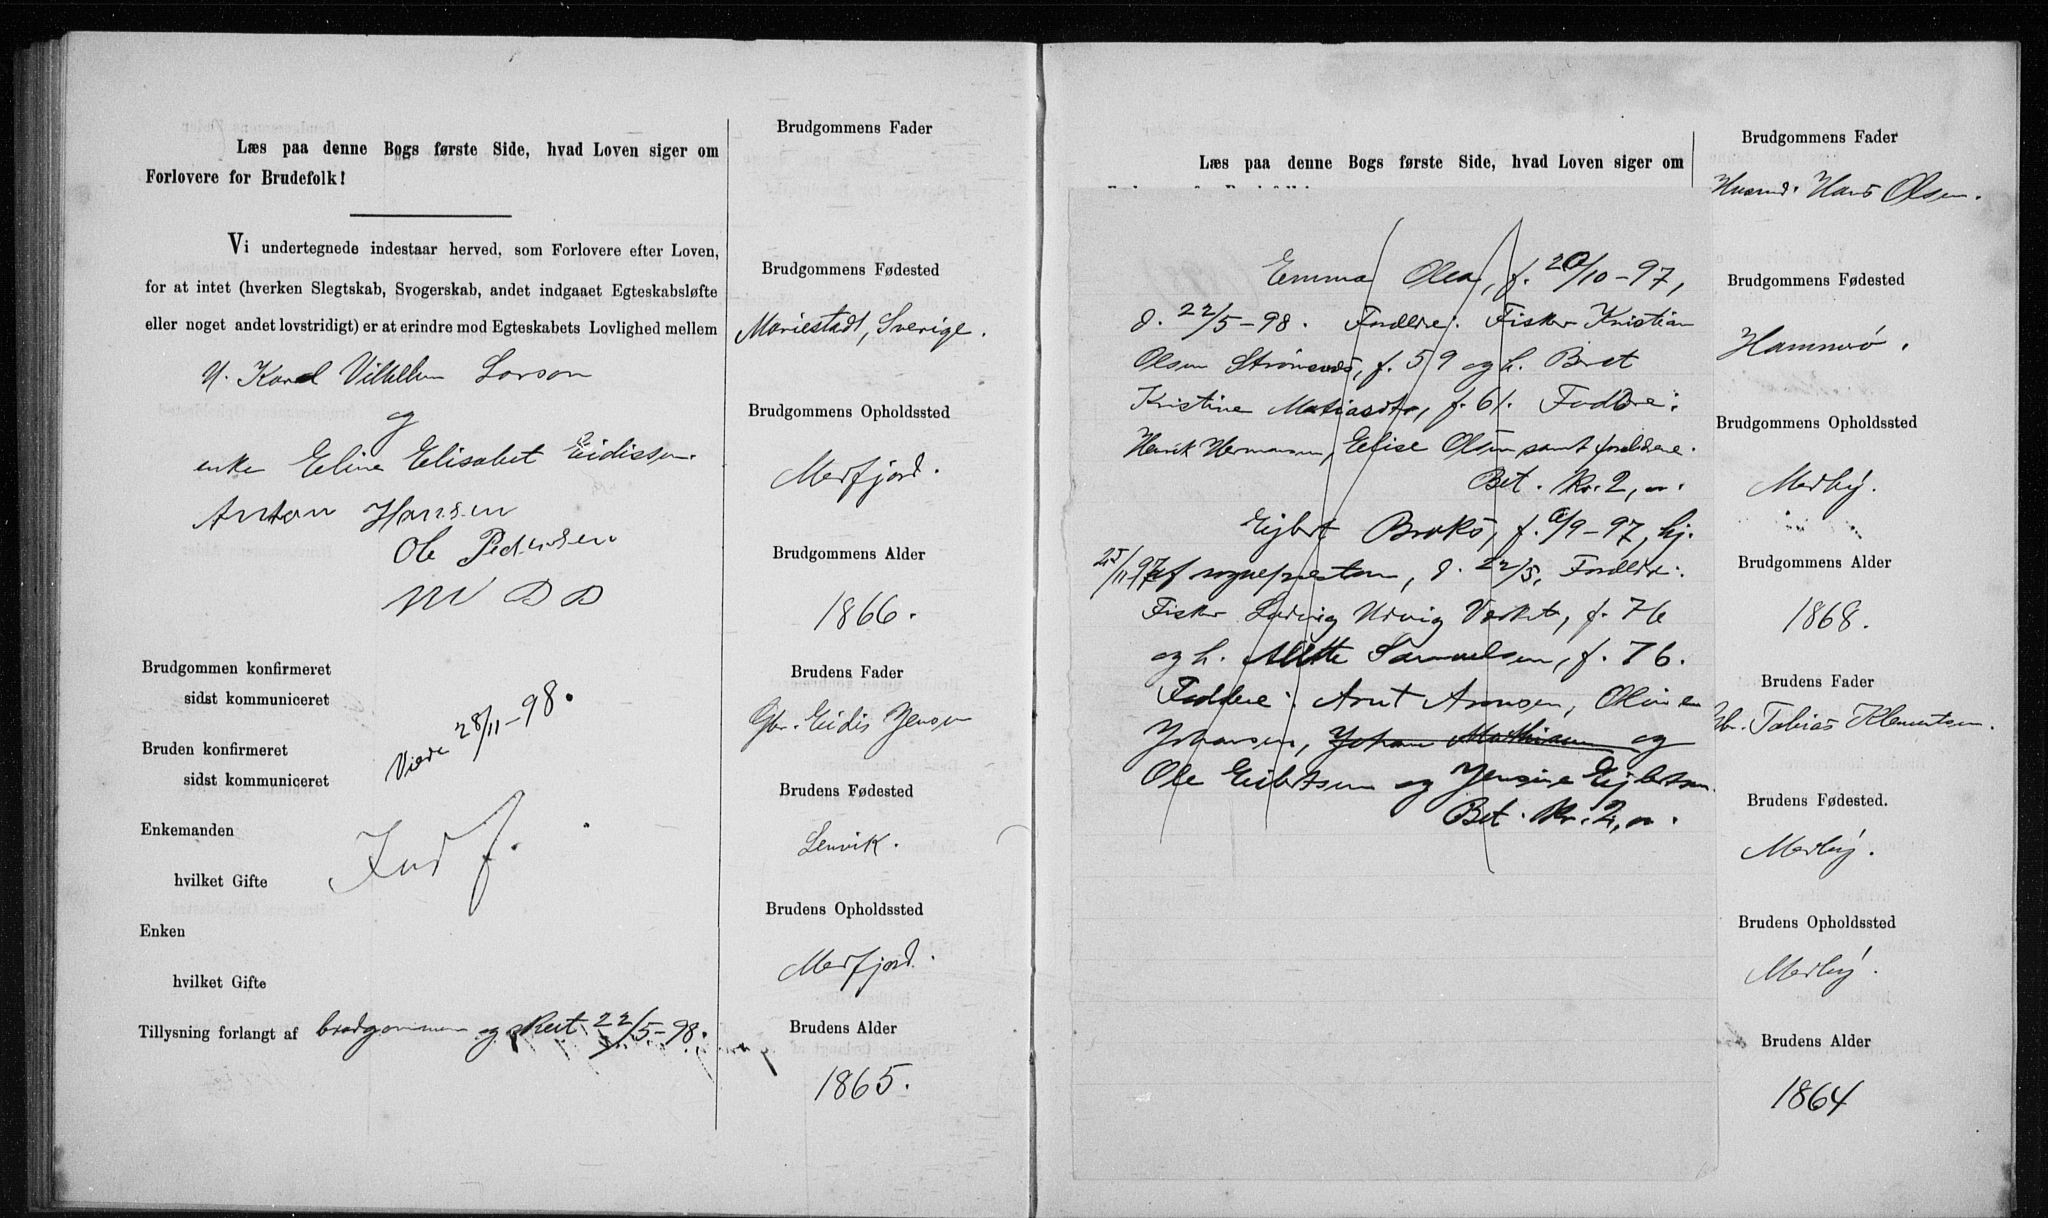 Læs paa denne Bogs første Side, hvad Loven siger om
Forlovere for Brudefolk!
Vi undertegnede indestaar herved, som Forlovere efter Loven,
for at intet (hverken Slegtskab, Svogerskab, andet indgaaet Egteskabsløfte
eller noget andet lovstridigt) er at erindre mod Egteskabets Lovlighed mellem
Karl Vilhelm Larson
og
enke Eline Elisabet Eidissen.
Anton Hansen
Ole Pedersen
Brudgommen konfirmeret
sidst kommuniceret
Viede 28/11-98.
Bruden konfirmeret
sidst kommuniceret
Enkemanden
Indf.
hvilket Gifte
Enken
hvilket Gifte
Tillysning forlangt af brudgommen og skeet 22/5-98.
Brudgommens Fader
Brudgommens Fødested
Mariestadt, Sverige.
Brudgommens Opholdssted
Mefjord.
Brudgommens Alder
1866.
Brudens Fader
Gbr. Eidis Jensen
Brudens Fødested
Lenvik.
Brudens Opholdssted
Mefjord.
Brudens Alder
1865.
Læs paa denne Bogs første Side, hvad Loven siger om
Emma Olea, f. 20/10-97,
d. 22/5-98. Forældre: Fisker Kristian
Olsen Strømsnes, f. 59 og h. Beret
Kristine Matiasdtr, f. 61. Faddere:
Henrik Hermansen, Elise Olsen samt forældrene.
Bet. kr. 2,00.
Eijbert f. 9/9-97, hj.
25/11 97 af sognepresten, d. 22/5, Forældre:
Fisker Ludvig f. 76
og h. Alette Samuelsen, f. 76.
Faddere: Arnt Arnsen,
Johansen, Johan Mathisen og
Ole Eibertsen og Jensine Eijbertsen.
Bet. kr. 2,00.
Brudgommens Fader
Husmd. Hans Olsen.
Brudgommens Fødested
Hamnø.
Brudgommens Opholdssted
Medby.
Brudgommens Alder
1868.
Brudens Fader
Gbr. Tobias Klemetsen.
Brudens Fødested.
Medby.
Brudens Opholdssted
Medby.
Brudens Alder
1864